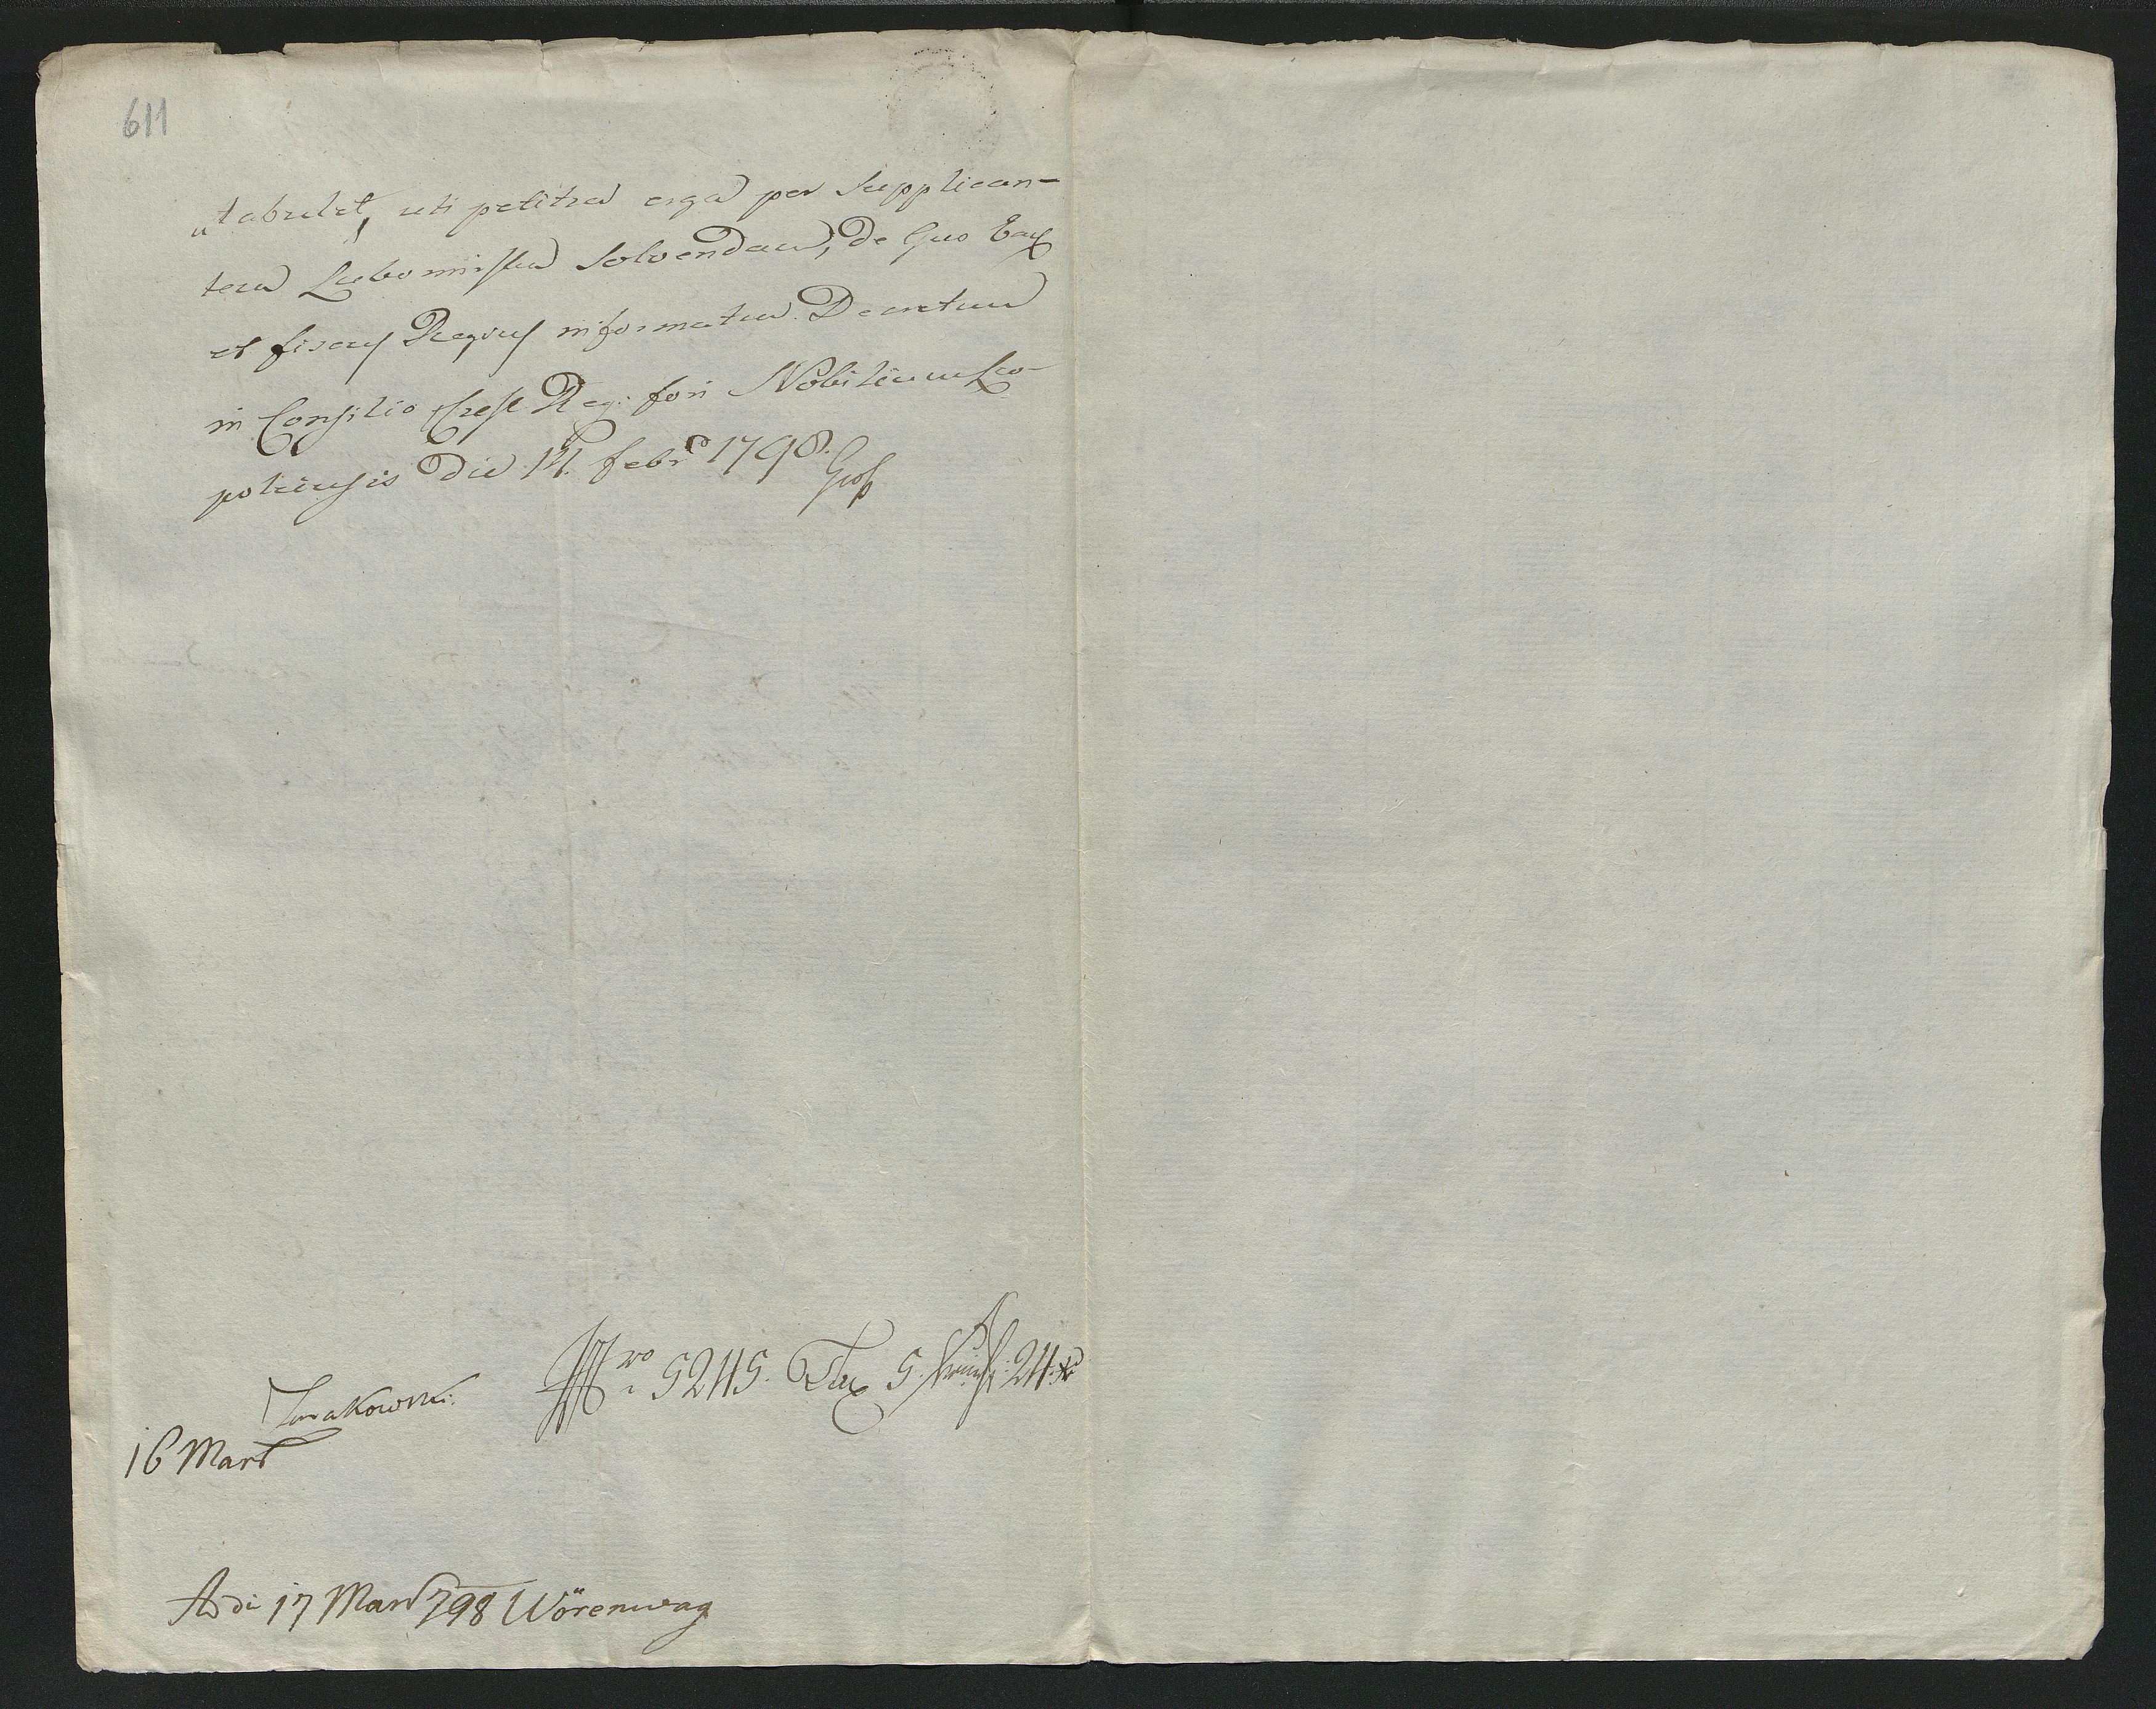 611
„tabulet, uti petitur erga per Supplican-
tem Lubomirska Solvendam, de quo Tax
et fiscus Regius informatur Decretum
in Consilio Cæs: Reg: fori Nobilium Leo-
poliensis Die 14. febr 1798.
Gross
Nro 5245. Tax 5. 24 xr
16 Mart
Adi 17 Mart 798 Wörenwag